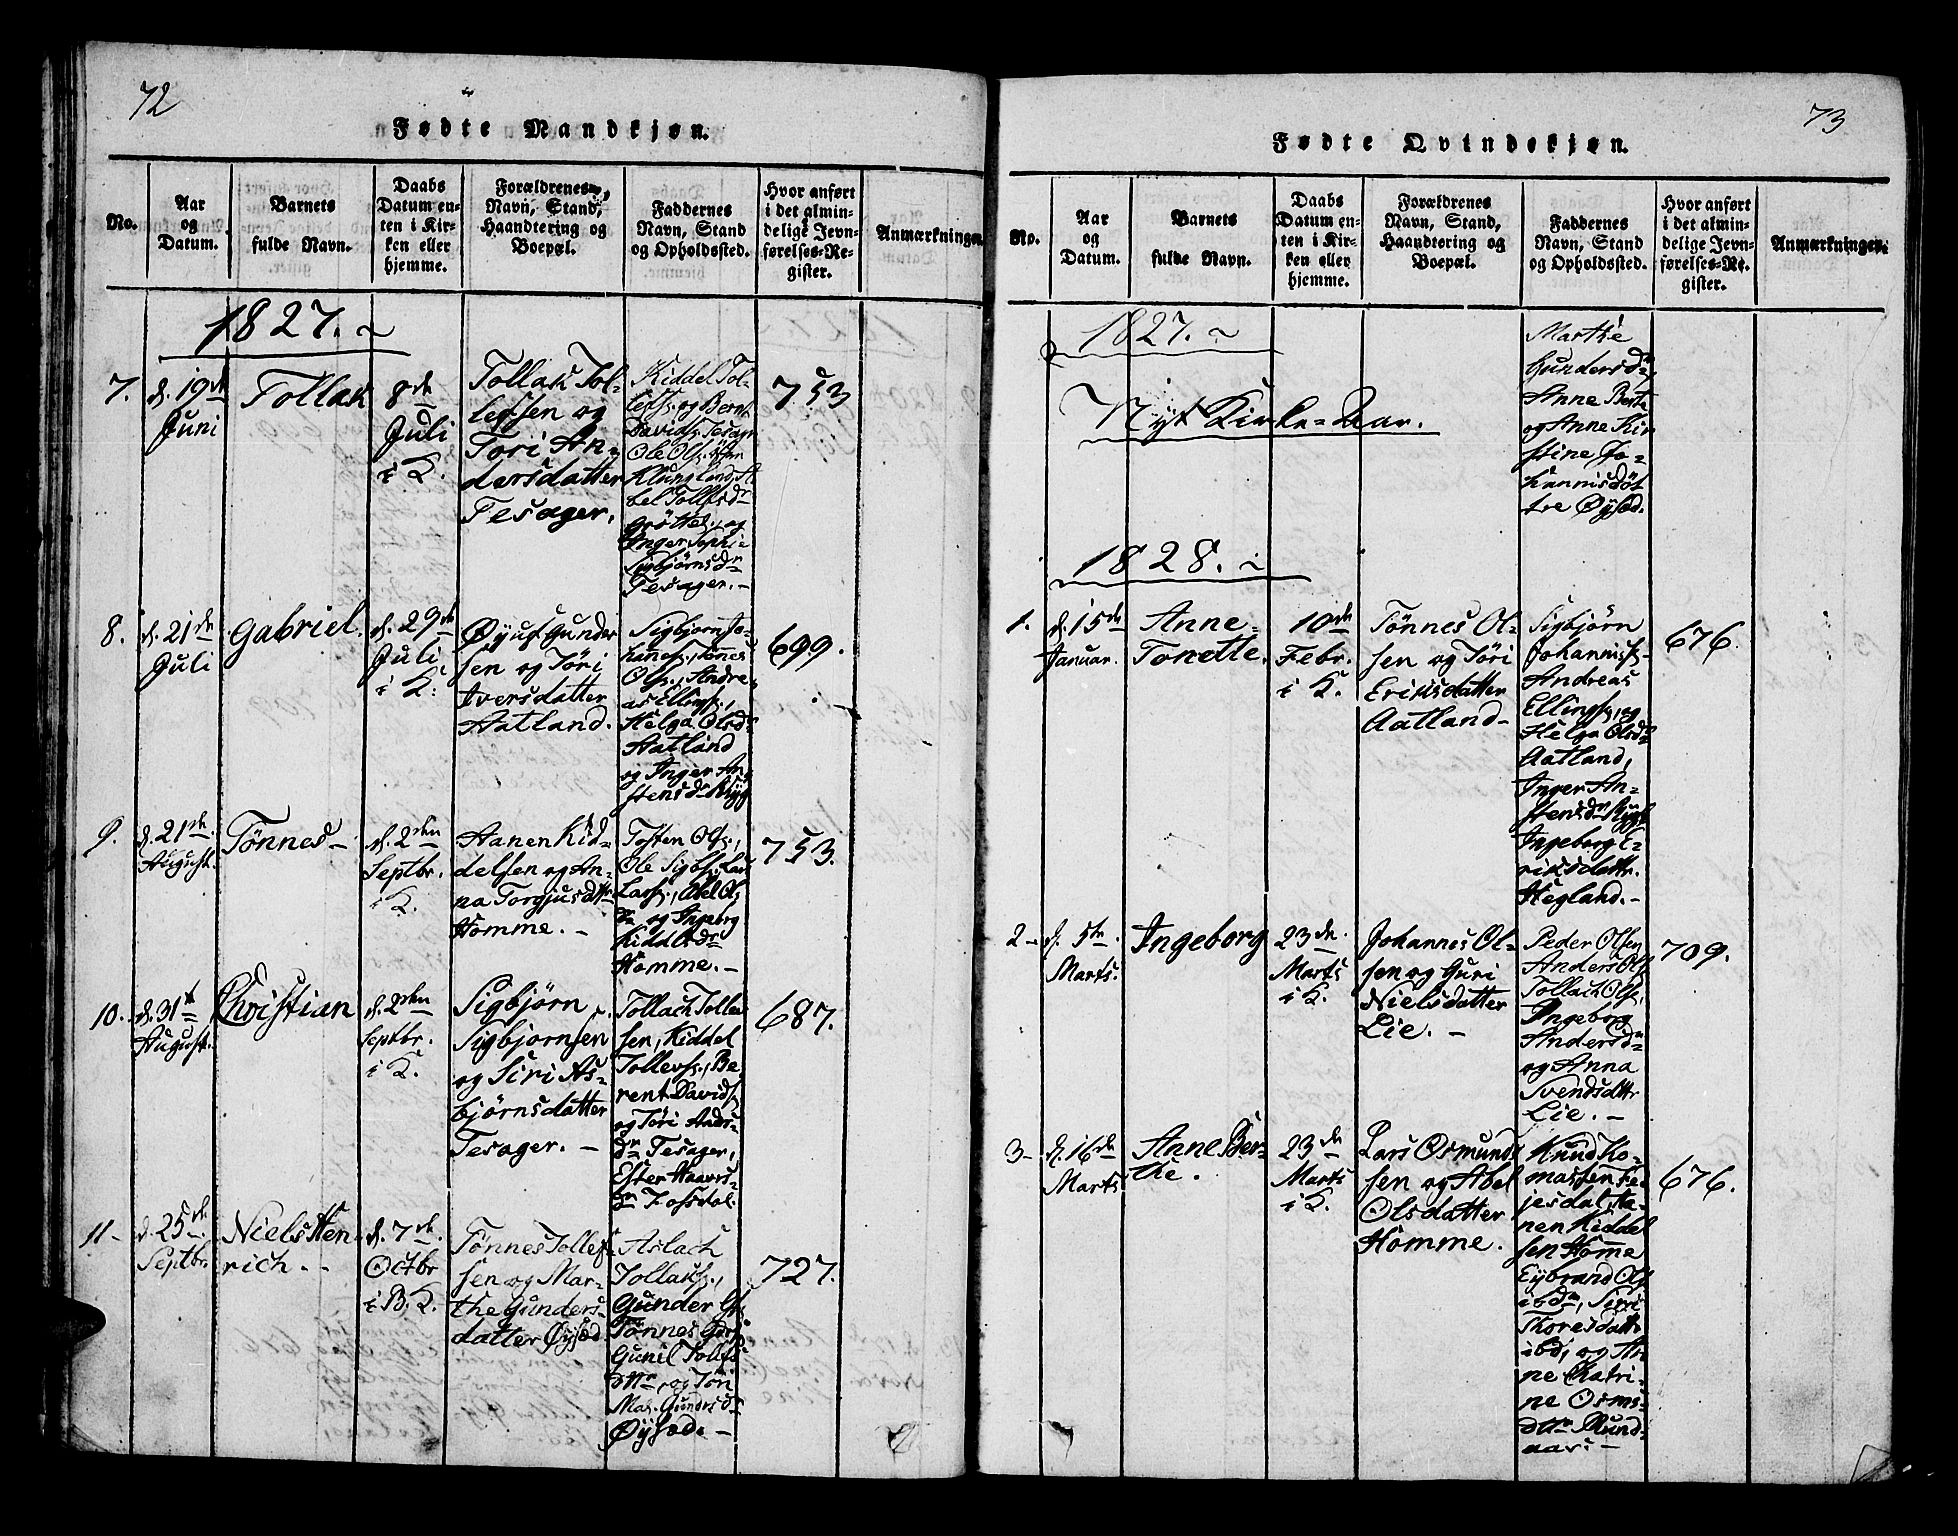 72
Fødte Mandkjøn.
No.
Aar
og
Datum.
Barnets
fulde Navn.
Daabs
Datum en-
ten i Kir-
ken eller
hjemme.
Forældrenes
Navn, Stand,
Haandtering og
Boepæl.
Faddernes
Navn, Stand
og Opholdssted.
Hvor anført
i det almin-
delige Jevn-
førelses-Re-
gister.
Anmærkninger.
1827.
7.
d. 19de
Juni
Tollak
8de
Juli
i K.
Tollak Tol-
lefsen og
Tori An-
dersdatter
Tesager.
Kiddel Tol-
lefss. og Bernt
Davids. Tesager
Ole Ols.
Klungland, A-
bel Tollfsdr
Grøttel., og
Inger Sophie
Sigbjørnsdr
Tesager.-
753
8.
d. 21de
Juli
Gabriel.
d. 29de
Juli
i K.
Øyuf Gunder
sen og Töri
Iversdatter
Aatland.
Sigbjorn Jo-
hanes., Tönnes
Ols., Andre-
as Ellings.,
Helga Olsdr
Aatland
og Inger An-
stensdr Rhyg
699.
9.
d. 21de
August.
Tönnes-
d. 2den
Septbr.
i K.
Aanen Kid-
delsen og An-
na Torgjusdttr
Homme.-
Tosten Ols.,
Ole Sigbs., Lars
Larss., Abel Ols
dr og Ingeborg
Kiddelsdr
Homme.-
753.
10.
d. 31te
August.
Christian
d. 2den
Septbr.
i K.
Sigbjörn
Sigbjornsen
og Siri As-
björnsdatter
Tesager.-
Tollach Tollev
sen, Kiddel
Tollevs., Be-
rent Davids.
og Töri Anders-
dr Tesager,
Ester Haavrs-
dr Fossdal.
687.
11-
d. 25de
Septbr.
Niels Hen-
rich.-
d. 7de
Octbr
i B. K.
Tönnes Tollef-
sen og Mar-
the Gunders-
datter Øysæd
Aslach
Tollaks.,
Gunder Gs.
Tönnes Gdrs.
Gunil Tollfs
dttr, og Ton
Mar. Gundrsdr
Øysæd.-
727.
73
Fødte Qvindekjøn.
No.
Aar
og
Datum.
Barnets
fulde Navn.
Daabs
Datum en-
ten i Kir-
ken eller
hjemme.
Forældrenes
Navn, Stand,
Haandtering og
Boepæl.
Faddernes
Navn, Stand
og Opholdssted.
Hvor anført
i det almin-
delige Jevn-
førelses-Re-
gister.
Anmærkninger.
1827.
Nyt Kirke-Aar.
Marthe
Gundersdr,
Anne Berte
og Anne Kir
stine Jo-
hannisdöt
tre Øysæd.
1828.
1.
d. 15de
Januar.
Anne
Tonette.
10de
Febr.
i K.
Tönnes Ol-
sen og Töri
Eriksdatter
Aatland-
Sigbjørn
Johanniss.
Andreas
Ellings., og
Helga Olsdr
Aatland,
Inger An-
stensdr Rygg
Ingeborg E-
riksdattr.
Hegland.-
676.
2-
d. 5te
Marts.
Ingeborg
23de
Marts
i K.
Johannes Ol-
sen og Guri
Nielsdatter
Lie.-
Peder Olsen
Anders Ols.
Tollach Ols.,
Ingeborg
Andersdr
og Anna
Svendsdttr
Lie.-
709.
3-
d. 16de
Marts
Anne Ber-
the.
23de
Marts
i K.
Lars Osmund
sen og Abel
Olsdatter
Homme.
Knud Ko-
massen Fed-
jesdal, Aa-
nen Kiddel
sen Home
Eybrand Ols
ibdm, Siri
Thoresdattr
ibd, og An-
ne Catri-
ne Osms-
dttr Rund-
aas.-
676.